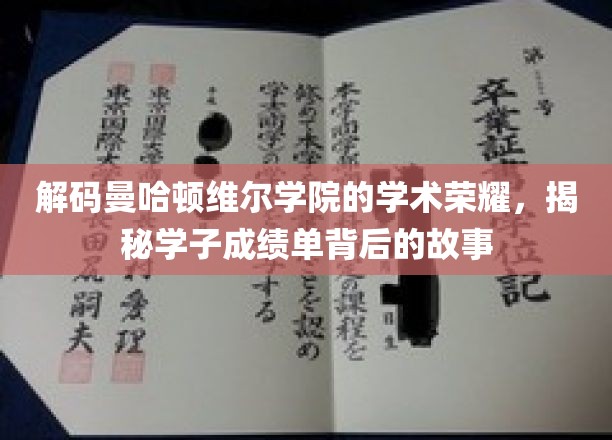 解码曼哈顿维尔学院的学术荣耀，揭
秘学子成绩单背后的故事
第 号
卒業証書 学位記
日生
本学商学部 定の課程を
修めて本学 ことを認め
学士(商学)の する
平成
東京国際大学商 村 愛理
東京国際大 長 田尻嗣夫